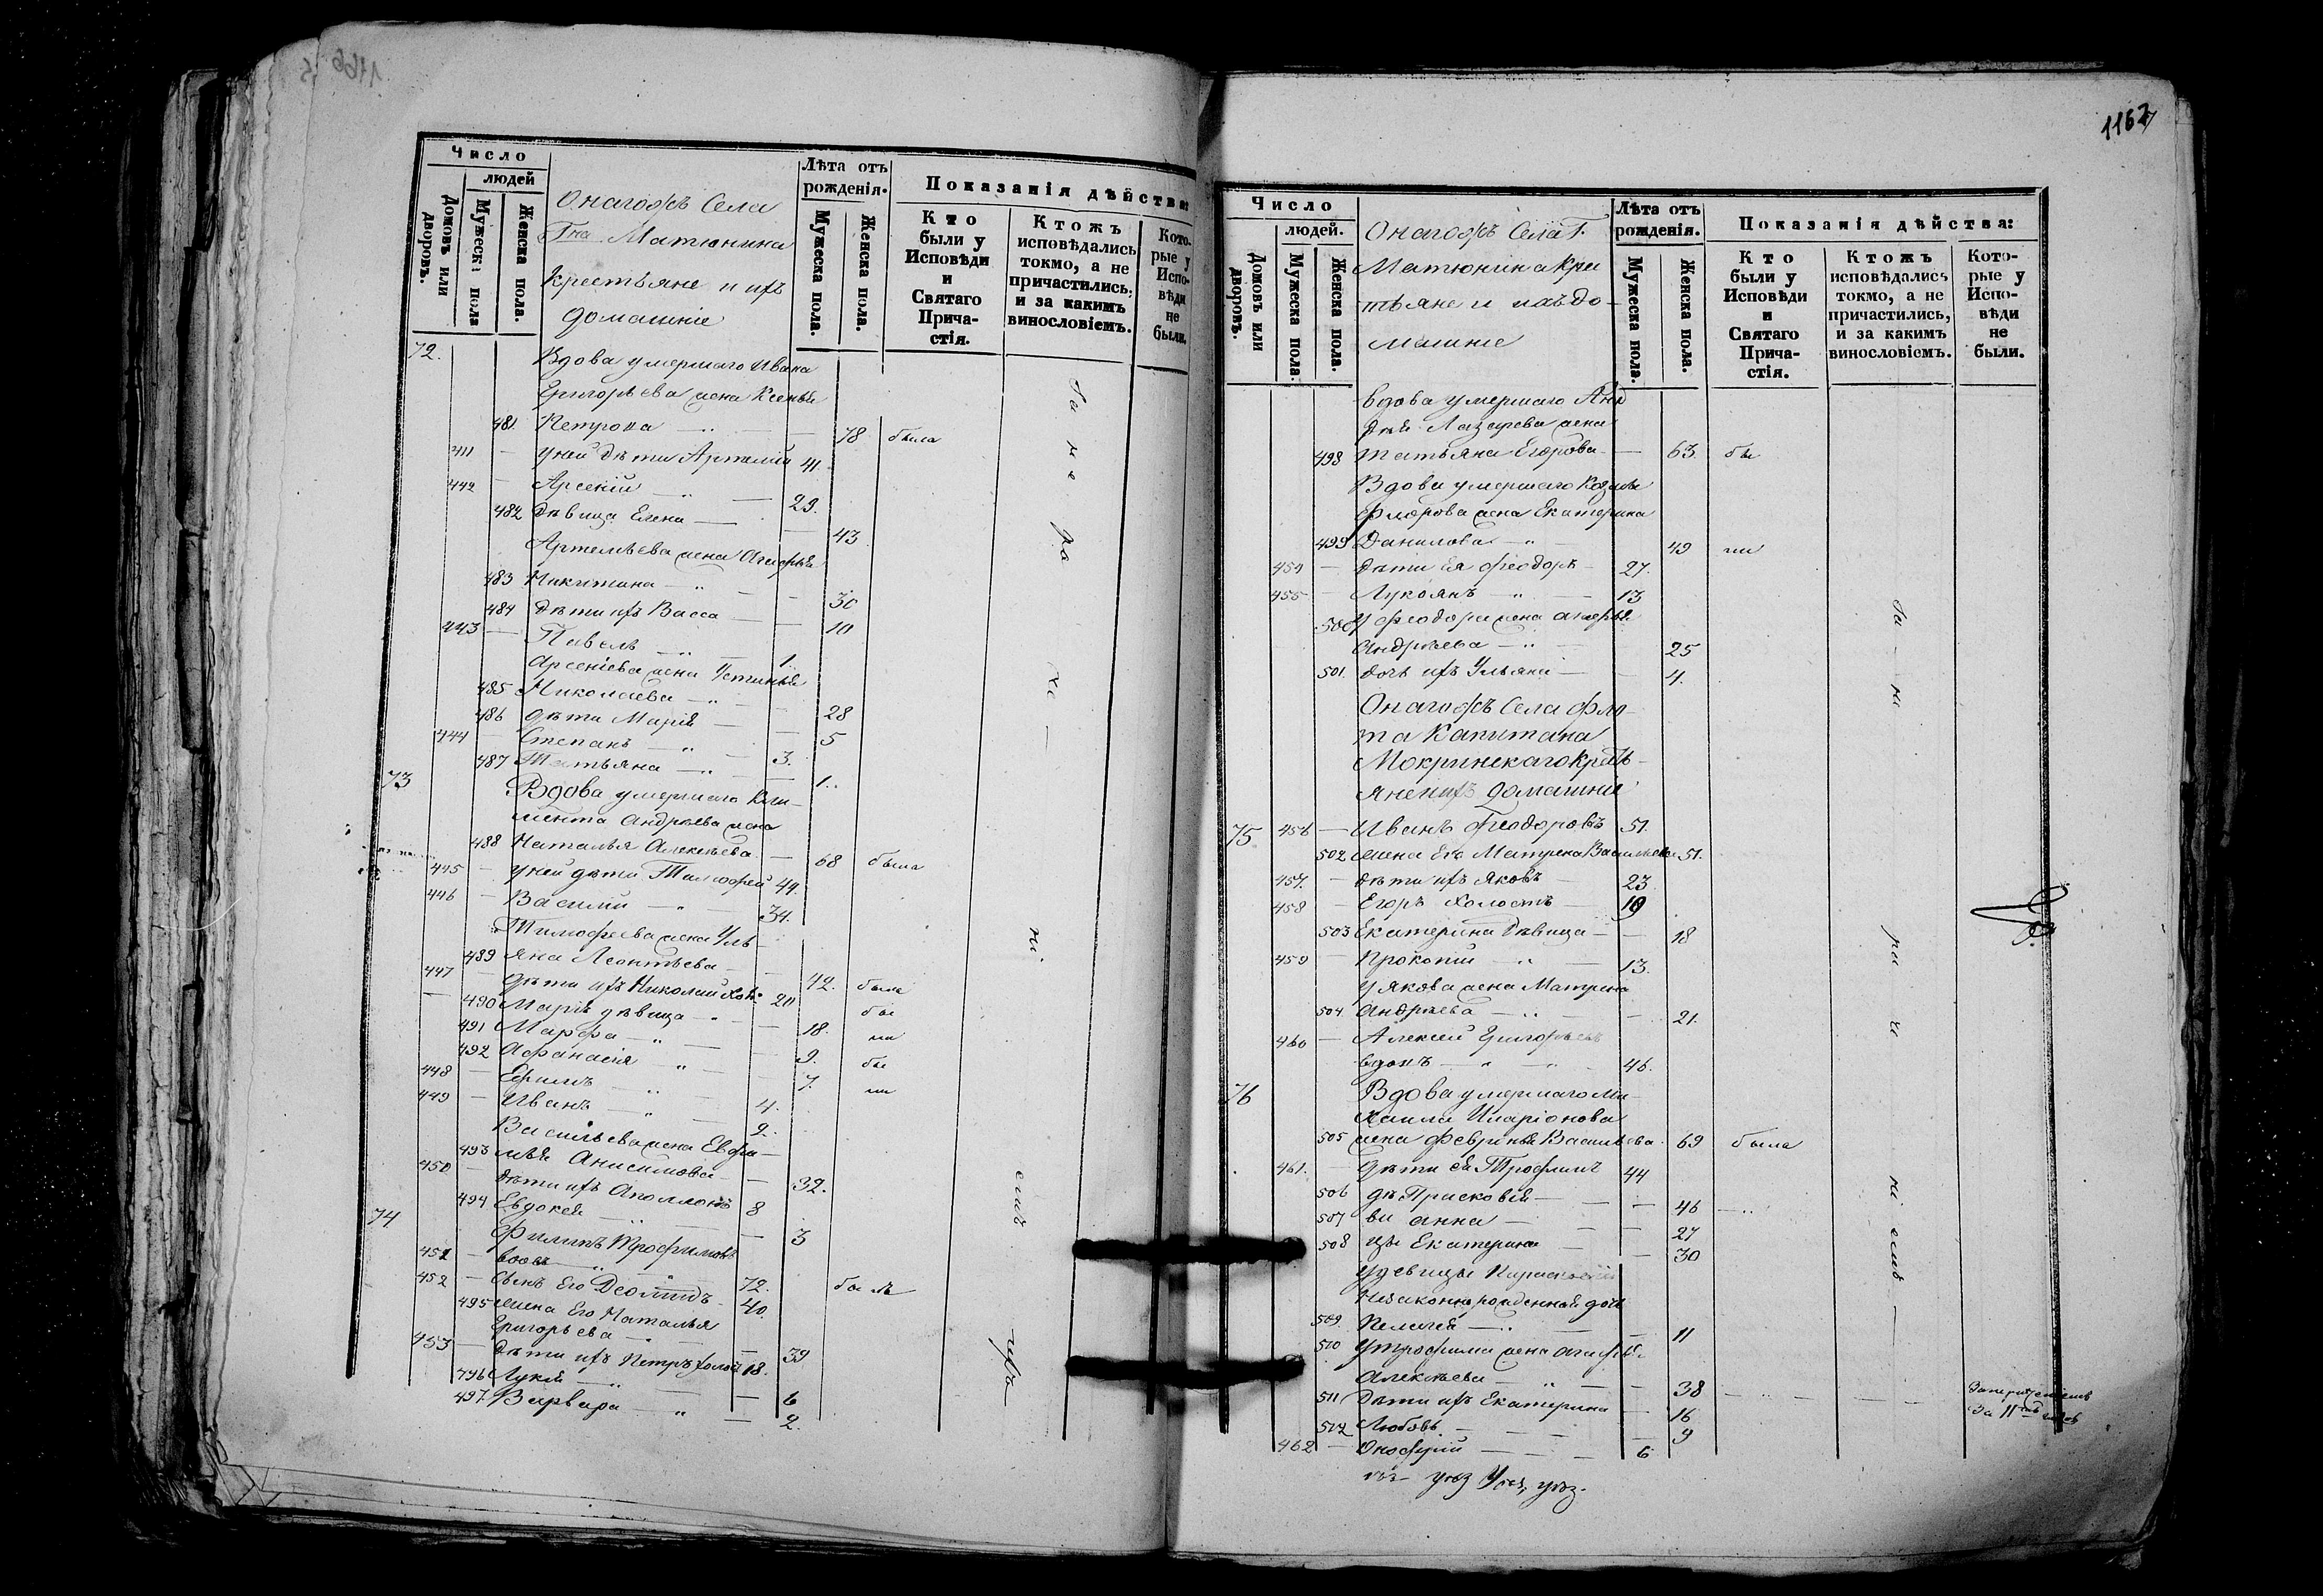 Число
людей
Домовъ или дворовъ.
Мужеска пола
Женска пола.
Онагожъ Села
Гна Матюнина
крестьяне и ихъ
домашніе
Лѣта отъ
рожденія.
Мужеска пола.
Женска пола.
Показанія дѣйства:
Кто
были у
Исповѣди
и
Святаго
Прича-
стія.
Ктожъ
исповѣдались
токмо, а не
причастились,
и за какимъ
винословіемъ.
Кото-
рые у
Испо-
вѣди
не
были.
72. Вдова умершаго Ивана
Григорьева жена Ксенья
481. Петрова 78 была
411 у ней дѣти Артемій 41
442 Арсеній 29.
482 дѣвица Елена 43
Артемьева жена Агафья
483 Никитина 30
484 дѣти ихъ Васса 10
443 Павелъ 1.
Арсеніева жена Устинья
485 Николаева 28
486 дѣти Марія 5
444 Степанъ 3.
487 Татьяна 1.
73 Вдова умершаго Кли-
мента Андреева жена
488 Наталья Алексѣева 68 была
445 у ней дѣти Тимофей 49.
446 Василій 34.
Тимофеева жена Уль-
489 яна Леонтьева 42. была
447 дѣти ихъ Николай хол. 20
490 Марія дѣвица 18. бы
491 Марфа 9. ли
492 Афанасія 7. бы
448 Ефимъ 4. ли
449 Иванъ 2.
Васильева жена Евфи-
493 мья Анисимова 32.
450 дѣти ихъ Аполлонъ 8
494 Евдокея 3
74 Филипъ Трофимовъ
451 вдовъ 72. былъ
452 Сынъ Его 40.
495 жена Его Наталья
Григорьева 39
453 дѣти ихъ Петръ холос 18.
796 Лукія 6
497. Варвара 2.
1167
Число
людей.
Домовъ или дворовъ.
Мужеска пола.
Женска пола.
Онагожъ Села Г.
Матюнина Кре
тьяне и ихъ до-
машніе
Лѣта отъ
рожденія.
Мужеска пола.
Женска пола.
Показанія дѣйства:
Кто
были у
Исповѣди
и
Святаго
Прича-
стія.
Ктожъ
исповѣдались
токмо, а не
причастились,
и за какимъ
винословіемъ.
Кото-
рые у
Испо-
вѣди
не
были.
вдова умершаго Анд
рея Лазарева жена
498 Татьяна Егорова 63. бы
Вдова умершаго Козьмы
Федорова жена Екатерина
499 Данилова 49 ли
454 дѣти ея Феодоръ 27.
455 Лукоянъ 13
500 у Феодора жена Агафья
Андреева 25
501. дочь ихъ Ульяна 4.
Онагожъ Села Фло-
та Капитана
Мокринскаго Кресть-
яне и ихъ домашніе
75 456 Иванъ Феодоровъ 51.
502 жена Его Матрена Васильева 51.
457. дѣти ихъ Яковъ 23
458 Егоръ холостъ 19
503 Екатерина дѣвица 18
459 Прокопій 13.
у Якова жена Матрена
504 Андреева 21.
460 Алексей Григорьевъ
вдовъ 46.
76 Вдова умершаго Ми-
хаила Иларіонова
505 жена Февринья Васильева 69 была
461. дѣти ея Трофимъ 44
506 дѣ Парасковія 46
507 ви Анна 27
508 цы Екатерина 30
у дѣвицы Парасковіи
незаконнорожденная дочь
509. Пелагея 11
510 у Трофима жена Агафья
Алексѣева 38
511 Дѣти ихъ Екатерина 16
512 Любовь 9
462 Онофрій 6